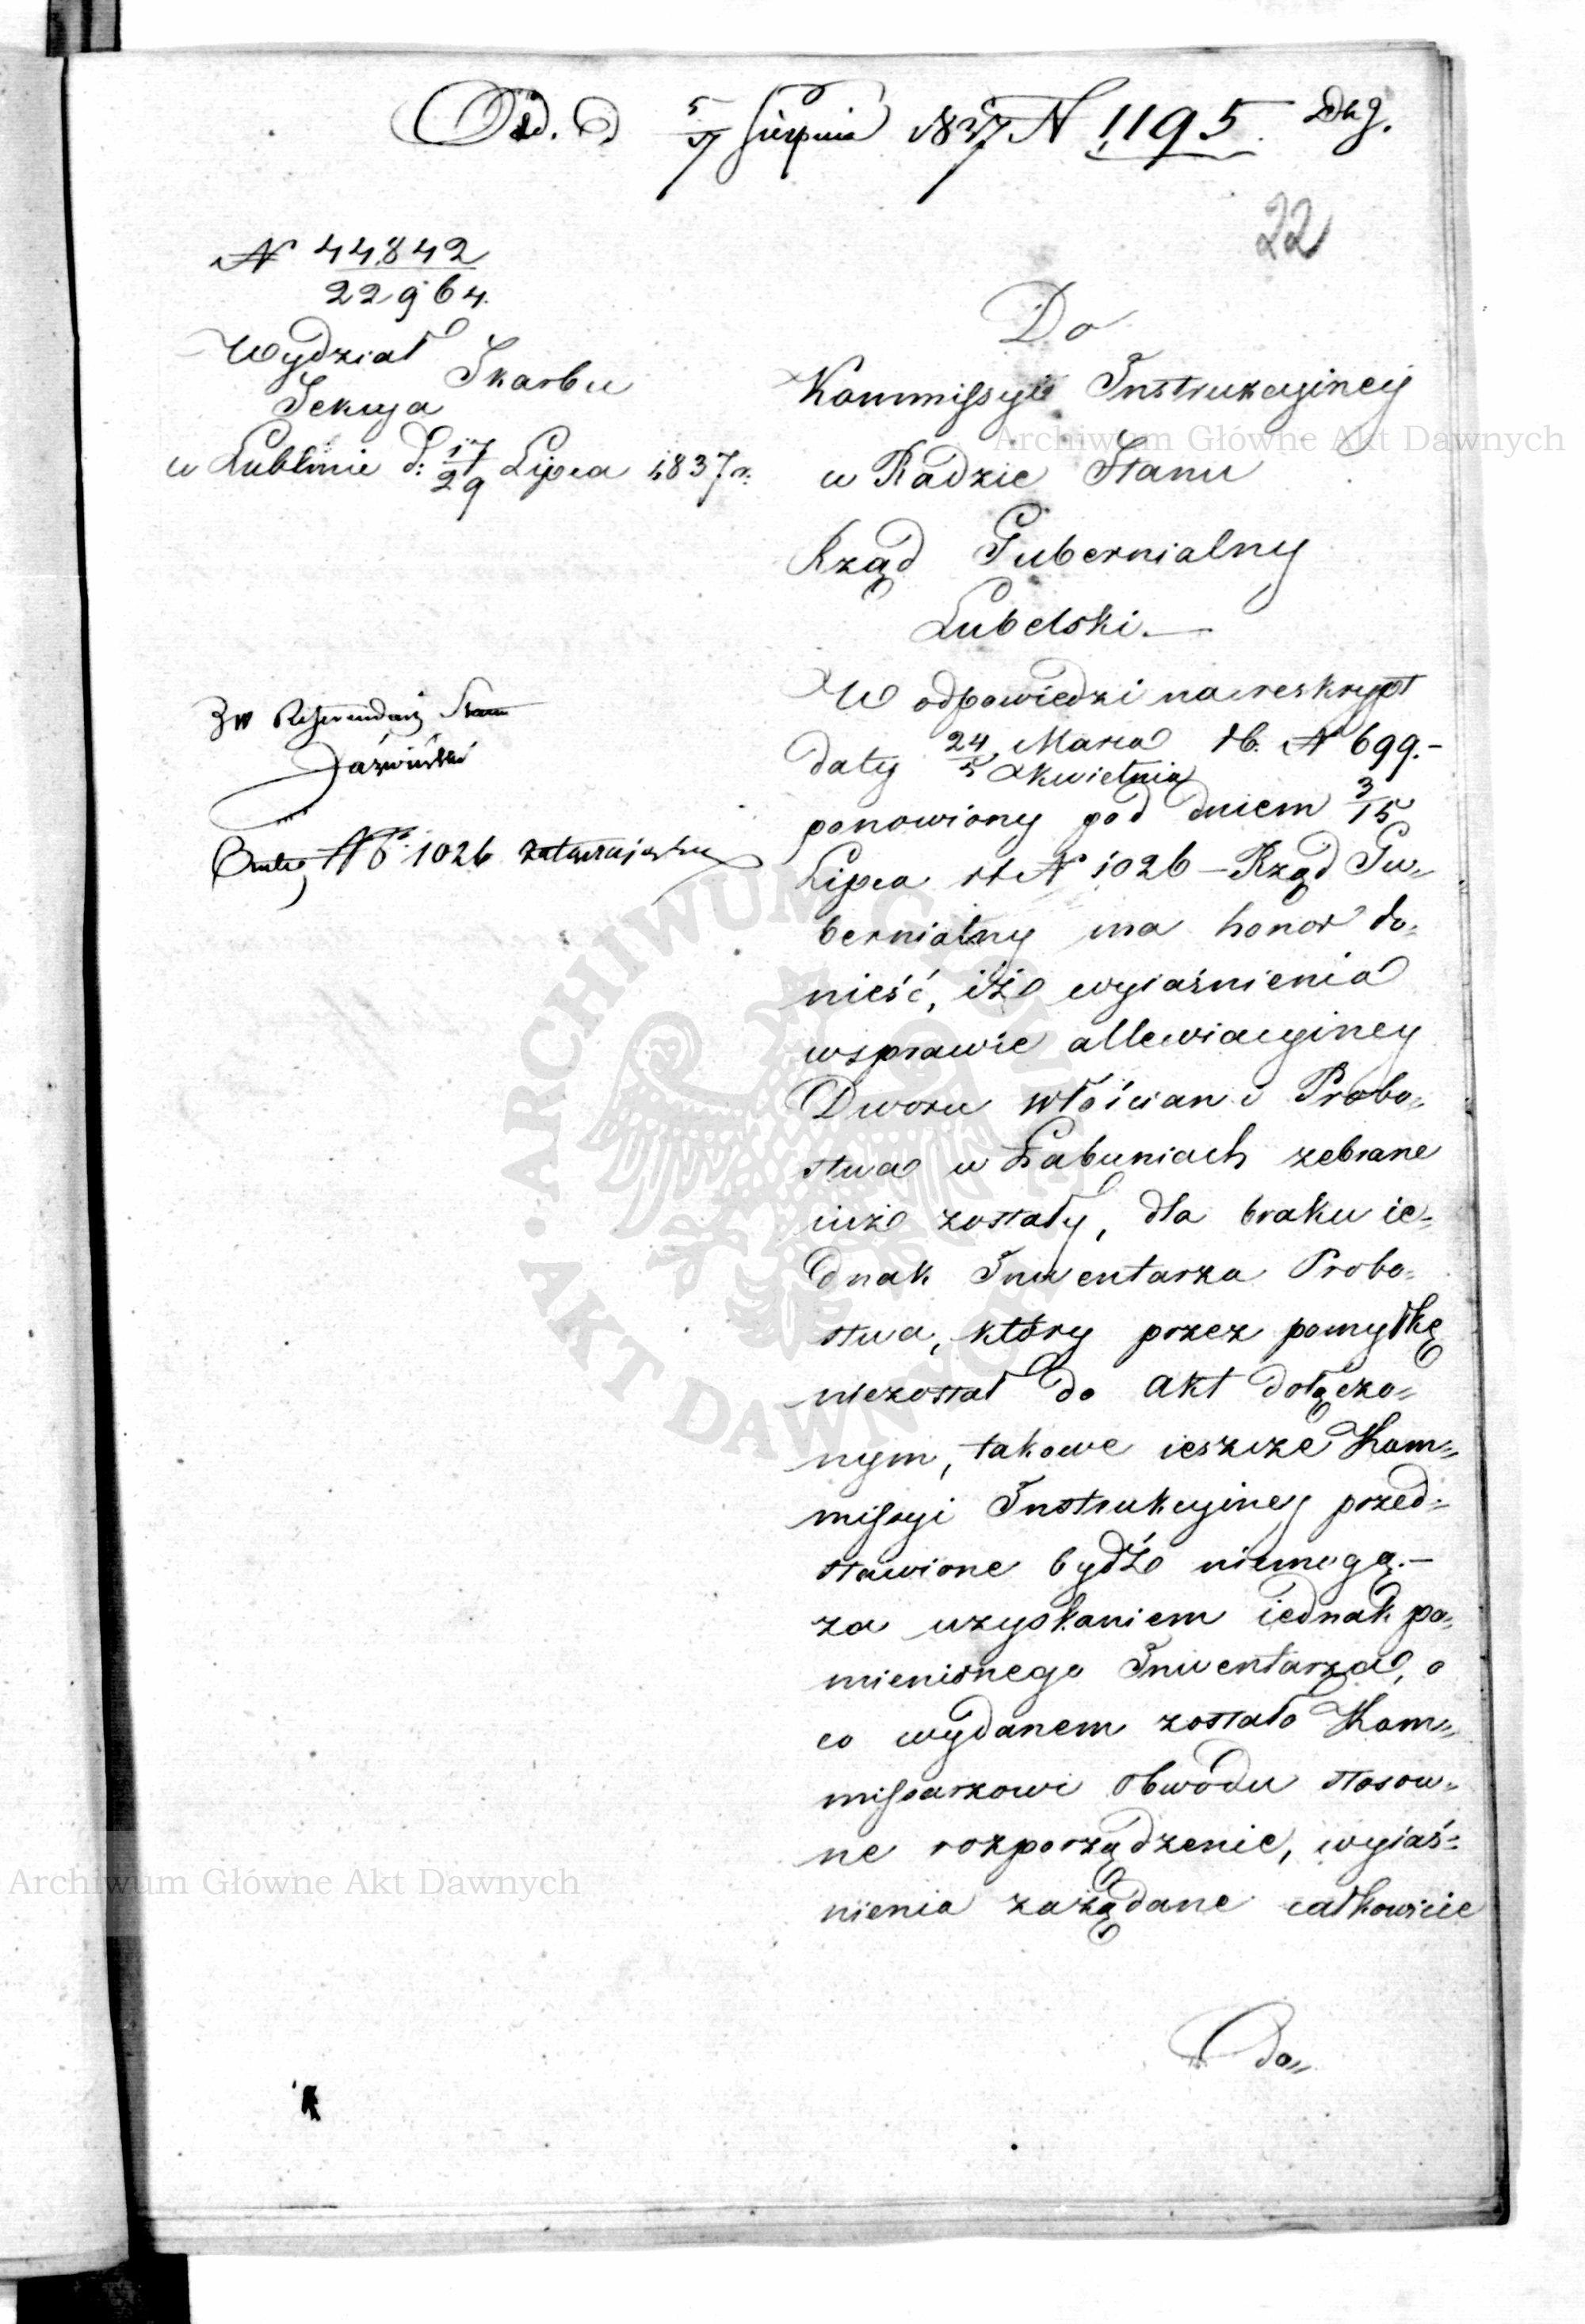 Od. D 5/17 Sierpnia 1837 N 1195.
22
N 44842
22964.
Wydział Skarbu
Sekcya
w Lublinie d: 17/29 Lipca 1837 r.
Do
Kommissyi Instrukcyiney
w Radzie Stanu
Rząd Gubernialny
Lubelski.—
W odpowiedzi na reskrypt
daty 24 Marca/5 Kwietnia rb. N 699.–
ponowiony pod dniem 3/15
Lipca rb N 1026 – Rząd Gu„
bernialny ma honor do„
nieść, iż wyiaśnienia
w sprawie allewiacyiney
Dworu włościan i Probo„
stwa w Łabuniach zebrane
iuż zostały, dla braku ie„
dnak Inwentarza Probo„
stwa, który przez pomyłkę
niezostał do akt dołączo„
nym, takowe ieszcze Kom„
missyi Instrukcyiney przed„
stawione bydź niemogą.–
za uzyskaniem iednak po„
mienionego Inwentarza, o
co wydanem zostało Kom„
missarzowi Obwodu stosow„
ne rozporządzenie, wyiaś„
nienia zażądane całkowicie
do„
Zw Referendarz Stanu
N 1026
Archiwum Główne Akt Dawnych
ARCHIWUM GŁÓWNE • AKT DAWNYCH •
Archiwum Główne Akt Dawnych